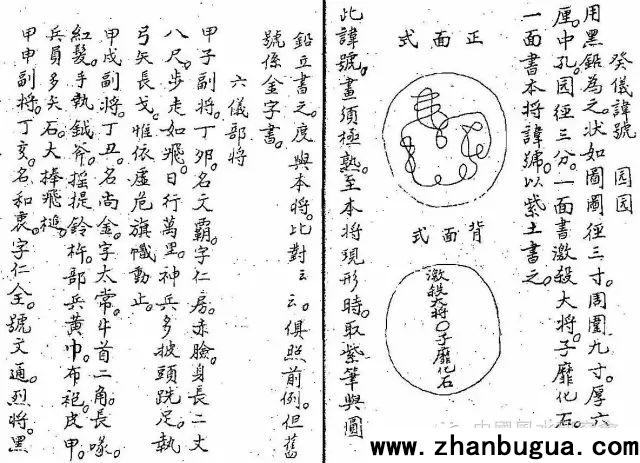 癸儀諱號　园园
用黑鉛為之狀如圖圓徑三寸。周圍九寸。厚六
厘中孔园徑三分。一面書激殺大將子靡化石。
一面書本將諱號以紫土書之。
正面式
背面式
激殺大將〇子靡化石
此諱號。畫須極熟。至本將現形時。取紫筆與圓
鉛立書之。度與本將。比對云云。俱照前例。但舊
號係金字書。
六儀部將
甲子副將。丁夘。名文霸。字仁房。赤臉。身長二丈
八尺。步走如飛。日行萬里。神兵多披頭跣足。執
弓矢長戈。惟依虛危旗幟動止。
甲戌副將。丁丑。名尚金。字太常。牛首二角。長喙。
紅髮。手執鉞斧。摇提鈴杵。部兵黃巾。布袍皮甲。
兵員多矢石。大棒飛槌。
甲申副將。丁亥。名和衷。字仁全。號文通。烈將。黑
www.zhanbugua.com